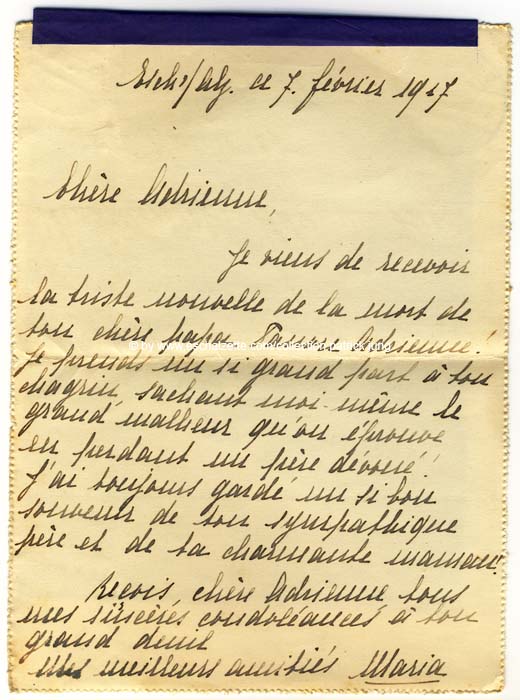 Esch s/Alz. ce 7. février 1917
Chère Adrienne,
Je viens de recevoir
la triste nouvelle de la mort de
ton chère papa. Adrienne!
Je prends un si grand part à ton
chagrin, sachant moi-même le
grand malheur qu'on éprouve
en perdant un père dévoué!
J'ai toujours gardé un si bon
souvenir de ton sympathique
père et de ta charmante maman!
Reçois, chère Adrienne, tous
mes sincères condoléances à ton
grand deuil
Mes meilleurs amitiés Maria